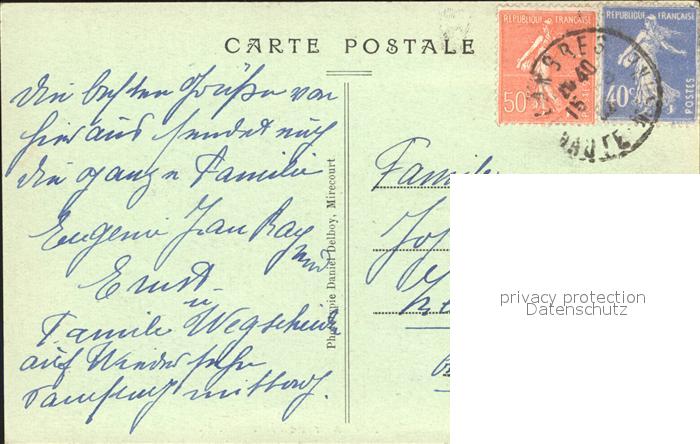 CARTE POSTALE
REPUBLIQUE FRANÇAISE
50c
REPUBLIQUE FRANÇAISE
40c
POSTES
LANGRES
HAUTE
Die besten Grüße von
hier aus sendet euch
die ganze Familie
Eugenie Jean Ray
und
Ernst
u
Familie Wegscheider
auf Wiedersehn
mittag.
Phototypie Daniel Delboy, Mirecourt
Familie
privacy protection
Datenschutz